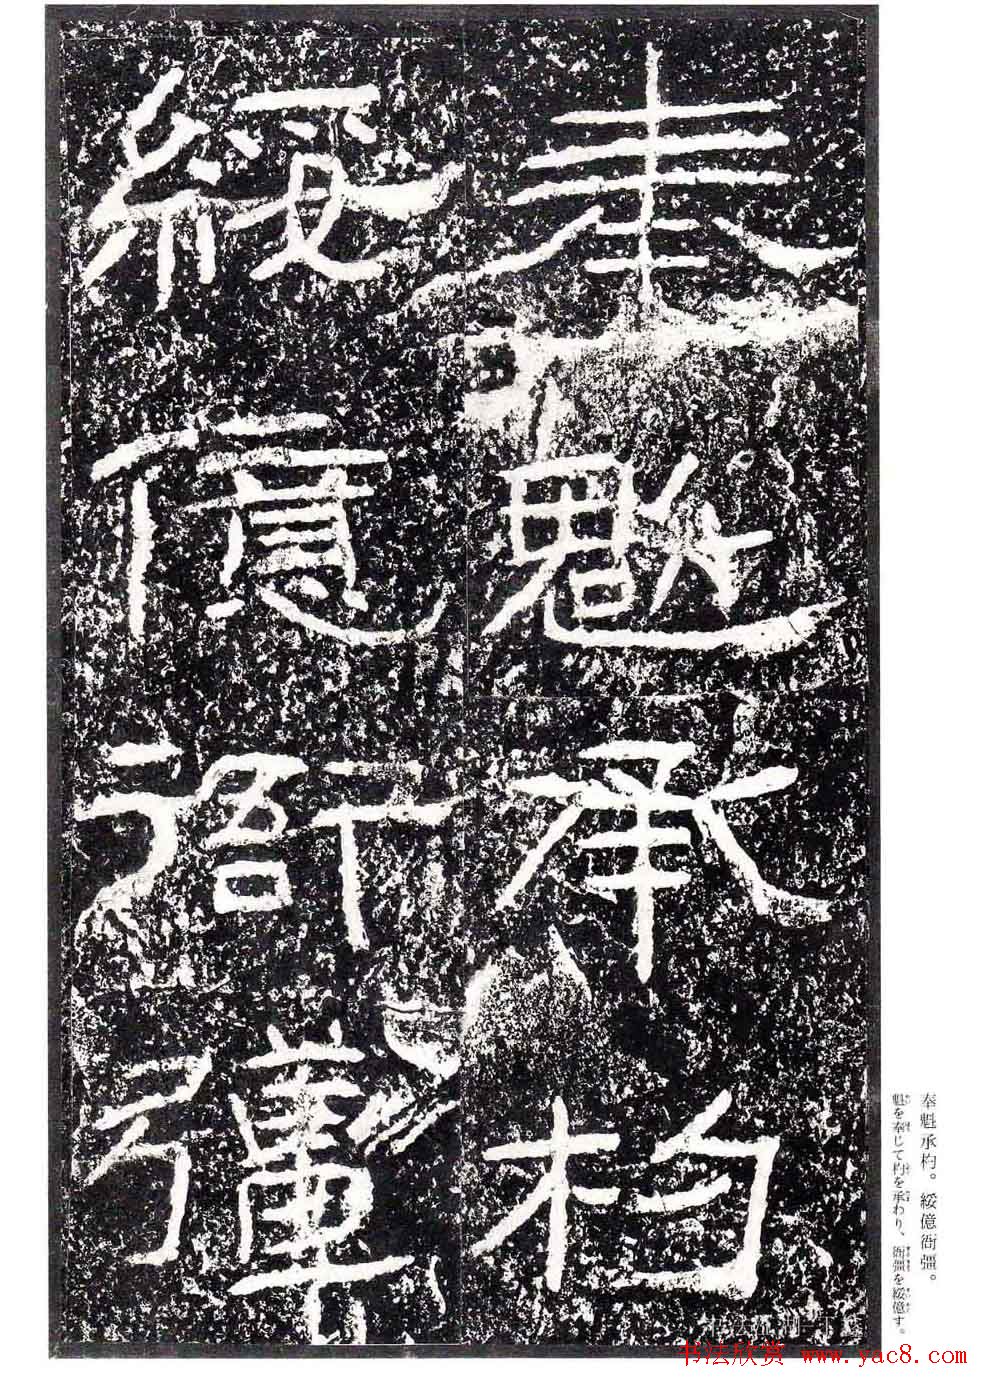 奉魁承杓
綏億衙彊
奉魁承杓。綏億衙彊。
魁を奉じて杓を承わり、衙彊を綏億す。
书法欣赏 www.yac8.com